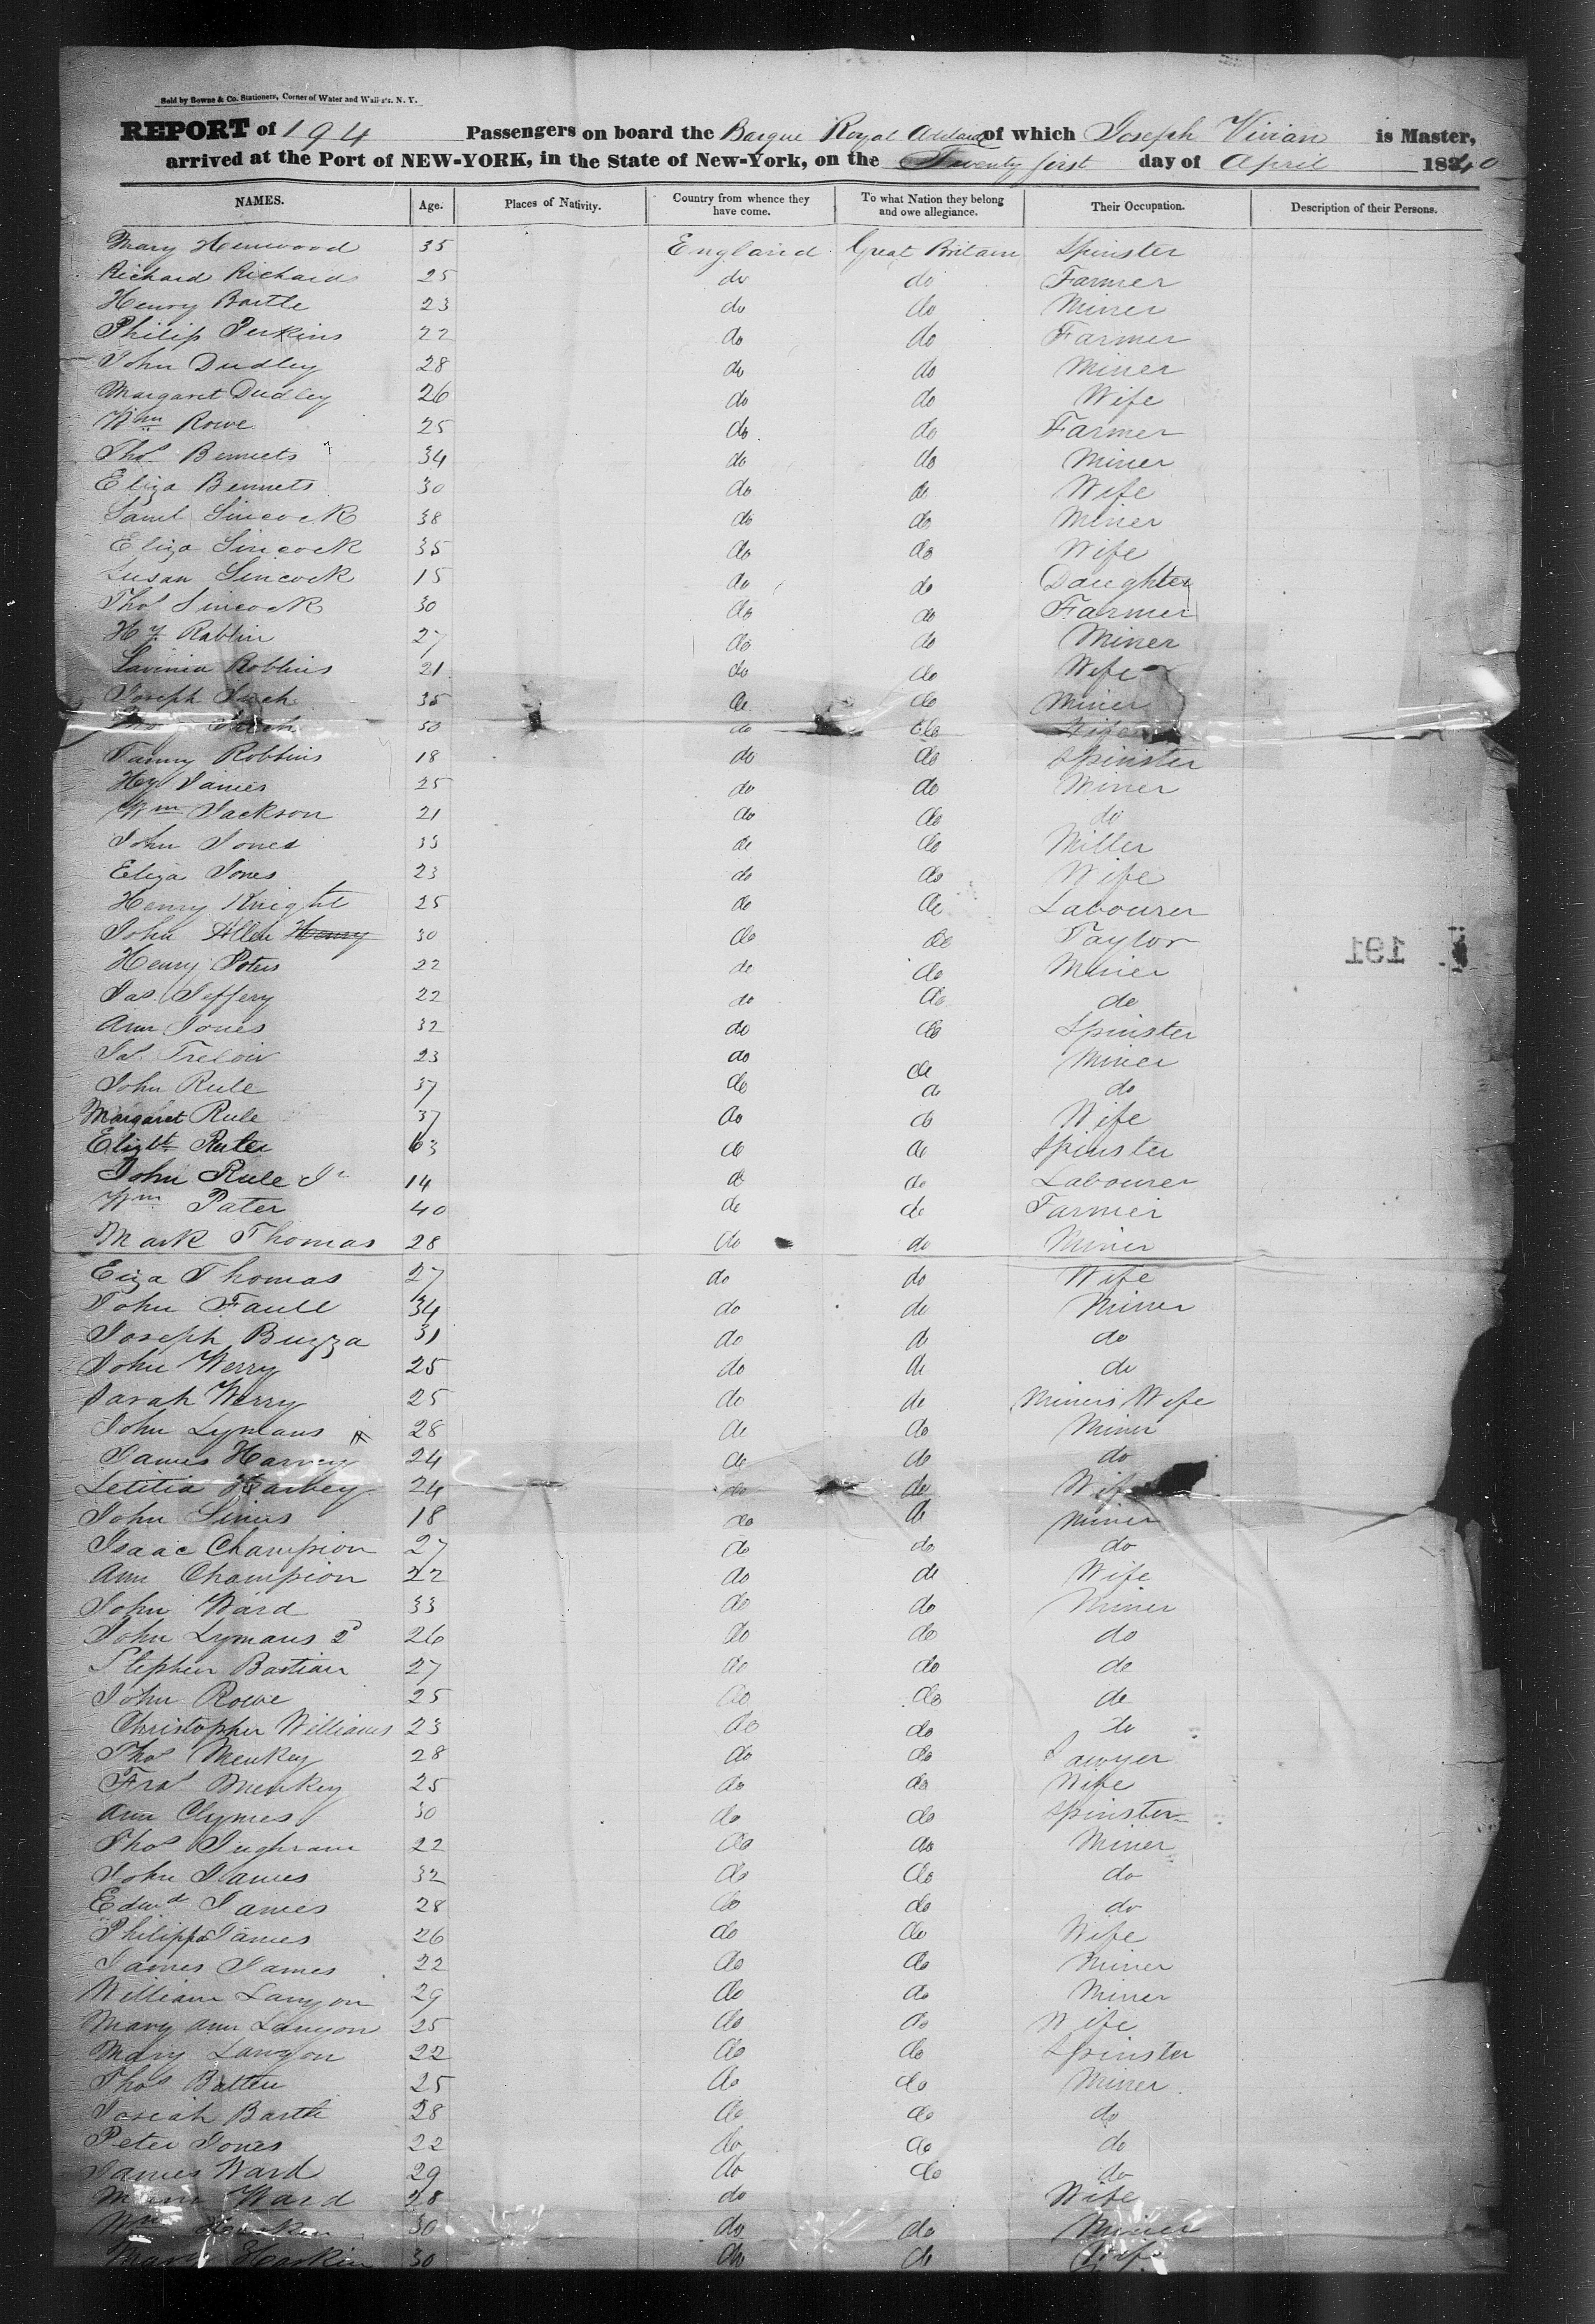 Sold by Bowne & Co. Stationers, Corner of Water and Wall-sts. N. Y.
REPORT of 194 Passengers on board the Barque Royal Adelaide of which Joseph Vivian is Master,
arrived at the Port of NEW-YORK, in the State of New-York, on the Twenty first day of April 1840
NAMES. Age. Places of Nativity. Country from whence they have come. To what Nation they belong and owe allegiance. Their Occupation. Description of their Persons.
Mary Henwood 35 England Great Britain Spinster
Richard Richards 25 do do Farmer
Henry Bartle 23 do do Miner
Philip Perkins 22 do do Farmer
John Dudley 28 do do Miner
Margaret Dudley 26 do do Wife
Wm Rowe 25 do do Farmer
Thos Bennets 34 do do Miner
Eliza Bennets 30 do do Wife
Saml Sincock 38 do do Miner
Eliza Sincock 35 do do Wife
Susan Sincock 15 do do Daughter
Thos Sincock 30 do do Farmer
Hy Rablin 27 do do Miner
Lavinia Robbins 21 do do Wife
Joseph 35 do do Miner
50 do do Wife
Fanny Robbins 18 do do Spinster
Hy James 25 do do Miner
Wm Jackson 21 do do do
John Jones 33 do do Miller
Eliza Jones 23 do do Wife
Henry Knight 25 do do Labourer
John Allen Henry 30 do do Taylor
Henry Peters 22 do do Miner
191
Jas. Jeffery 22 do do do
Ann Jones 32 do do Spinster
Jas Treloir 23 do do Miner
John Rule 37 do do do
Margaret Rule 37 do do Wife
Elizbt Rule 63 do do Spinster
John Rule Jr 14 do do Labourer
Wm Pater 40 do do Farmer
Mark Thomas 28 do do Miner
Eiza Thomas 27 do do Wife
John Faull 34 do do Miner
Joseph Buzza 31 do do do
John Werry 25 do do do
Sarah Werry 25 do do Miners Wife
John Lymans 28 do do Miner
James Harvey 24 do do do
Letitia Harvey 24 do do Wife
John Sims 18 do do Miner
Isaac Champion 27 do do do
Ann Champion 22 do do Wife
John Ward 33 do do Miner
John Lymans 2d 26 do do do
Stephen Bastian 27 do do do
John Rowe 25 do do do
Christopher Williams 23 do do do
Thos Menkey 28 do do Sawyer
Fras Menkey 25 do do Wife
Ann Clymes 30 do do Spinster
Thos Inghram 22 do do Miner
John James 32 do do do
Edwd James 28 do do do
Philippa James 26 do do Wife
James James 22 do do Miner
William Lanyon 29 do do Miner
Mary Ann Lanyon 25 do do Wife
Mary Lanyon 22 do do Spinster
Thos Batten 25 do do Miner
Josiah Bartle 28 do do do
Peter Jones 22 do do do
James Ward 29 do do do
Ward 28 do Wife
Wm 30 do do Miner
Mary Hoskin 30 do do Wife